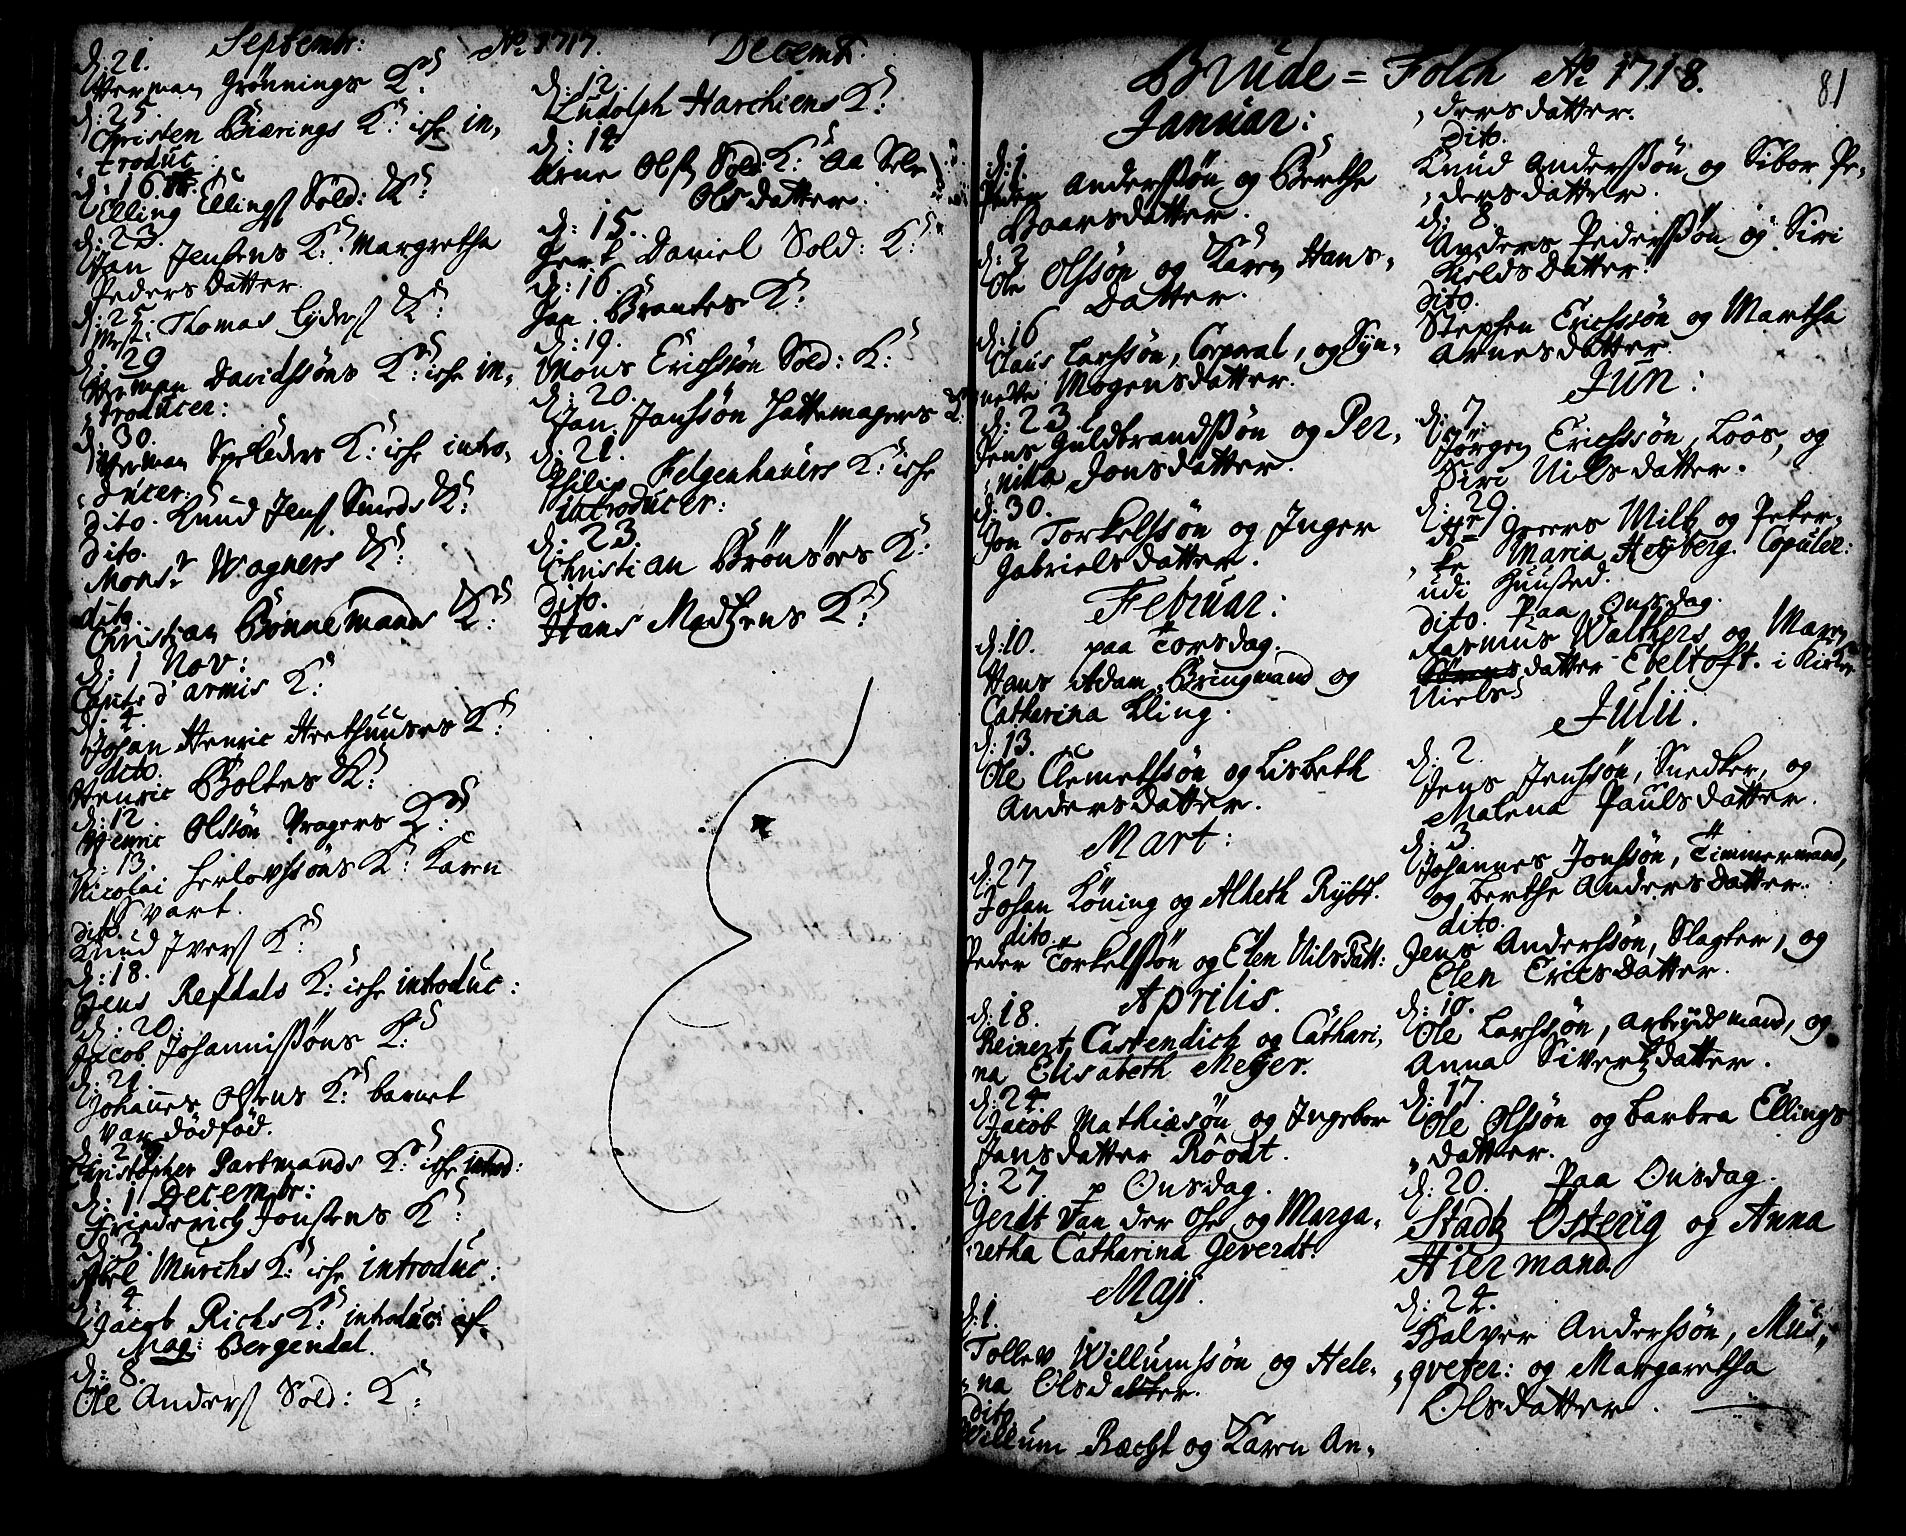 Septembr: Aº 1717.
d: 21.
Herman Grønnings K:
d: 25.
Christen Biærings K: iche in,
,troduc:
d: 16. 8br
Elling Ellings Sold: K:
d: 23.
Jan Jensens K: Margretha
Peders datter.
d: 25
Mest: Thomas Lyders K:
d: 29
Herman Davidssøns K: iche in,
,troducer:
d: 30.
Herman K: iche intro,
,ducer:
dito. Knud Jens Smeds K:
dito.
Monsr Wagners K:
dito.
Christian Bønnemands K:
d: 1 Nov:
Capit: d'armis K:
d: 4.
Johan Henric Heethuuses K:
dito.
Henric Boltes K:
d: 12
Henric Olssøn Pragers K:
d: 13.
Nicolai Herlovssøns K: Karen
Svart.
dito.
Knud Ivers K:
d: 18.
Jens Refdals K: iche introduc:
d: 20.
Jacob Johannissøns K:
d: 21.
Johannes Olsens K: barnet
var dødfød.
Christopher Partmands K: iche introd:
d: 1 Decembr:
Friederich Jonsens K:
d: 3.
Abel Murchs K: iche introduc:
d: 4
Jacob Richs K: introduc: af
Mag: Bergendal.
d: 8.
Ole Anders Sold: K:
Decembr.
d: 12.
Ludolph Harchiens K:
d: 14
Arne Ols Sold: K: Aa Sele
Olsdatter.
d: 15.
Gert Daniel Sold: K:
d: 16.
Jan Brantes K:
d: 19.
Mons Ericssøn Sold: K:
d: 20.
Jan Janssøn Hattemagers K:
d: 21.
Philip Felgenhauers K: iche
introducer:
d: 23.
Christian Brønsørs K:
dito.
Hans Madsens K:
Brude = Folch Aº 1718.
81
Januar:
d: 1.
Peder Anderssøn og Berthe
Baarsdatter.
d: 2
Ole Olssøn og Karen Hans,
Datter.
d: 16
Claus Larssøn, Corporal, og Syn,
neve Mogensdatter.
d: 23
Jens Guldbrandssøn og Per,
,nille Jonsdatter.
d: 30.
Jon Torkelssøn og Inger
Gabrielsdatter.
Februar:
d: 10. paa Torsdag.
Hans Adam Bringmand og
Catharina Kling.
d: 13.
Ole Clemetssøn og Lisbeth
Andersdatter.
Mart:
d: 27
Johan Køning og Alheth Rybt.
dito.
Peder Torkelssøn og Elen Nilsdatt:
Aprilis.
d: 18.
Reinert Castendich og Cathari,
na Elisabeth Meyer.
d: 24.
Jacob Mathiasøn og Ingebor
Jansdatter Roodt.
d: 27. p Onsdag.
Gerdt Van der Ohe og Marga,
,retha Catharina Geverdt:
Maji.
d: 1.
Tollev Willumssøn og Hele,
,na Olsdatter.
dito.
Willum Ræcht og Karen An,
,dersdatter.
dito.
Knud Anderssøn og Sibor Pe,
,dersdatter.
d: 8
Anders Pederssøn og Siri
Kieldsdatter.
dito.
Stephen Ericssøn og Martha
Arnesdatter.
Jun:
d: 7.
Jørgen Ericssøn, Loos, og
Siri Nielsdatter.
d: 29.
Hr Geeers Miltz og Peter,
,ke Maria Heyberg. Copuler:
udi Huused.
dito. Paa Onsdag.
Rasmus Walthers og Maren
Sørensdatter Ebeltoft. i Kirken
Niels
Julii.
d: 2.
Jens Jenssøn, Snedker, og
Malena Paulsdatter.
d: 3.
Johannes Jonssøn, Timmermand,
og Berthe Andersdatter.
dito.
Jens Anderssøn, Slagter, og
Elen Ericsdatter.
d: 10.
Ole Larssøn, arbeydsmand, og
Anna Sivertzdatter.
d: 17.
Ole Olssøn og Barbra Ellings
,datter.
d: 20. Paa Onsdag.
Stadtz Osterig og Anna
Hiermand.
d: 24.
Halver Anderssøn, Mus,
,qveter: og Margaretha
Olsdatter.